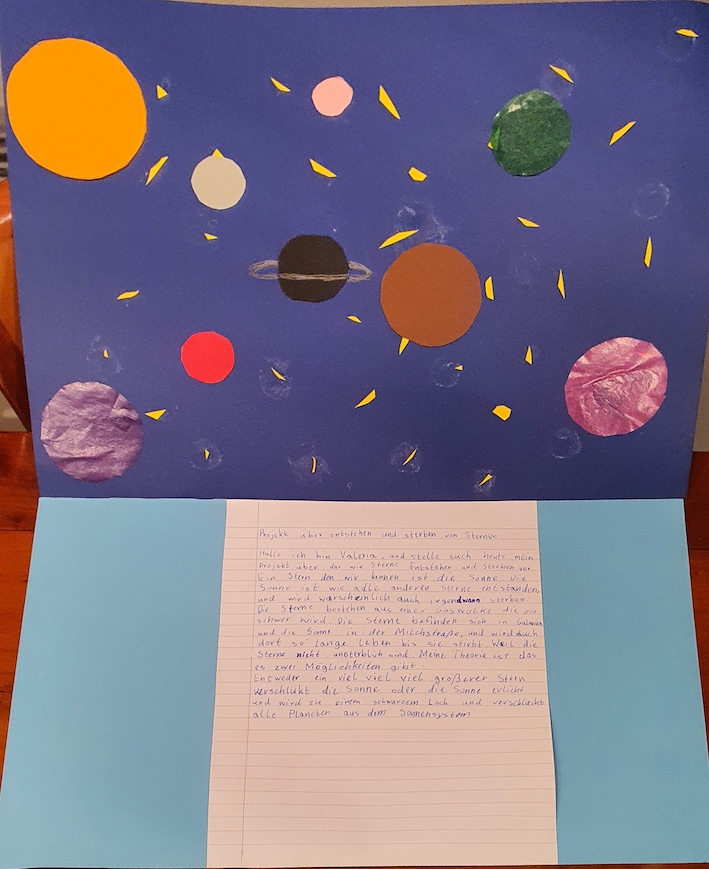 Projekt über entstehen und sterben von Sternen
Hallo ich bin Valeria, und stelle euch heute mein
Projekt über das wie Sterne Entstehen und Sterben vor.
Ein Stern den wir kennen ist die Sonne. Die
Sonne ist wie alle anderen Sterne entstanden,
und wird warscheinlich auch irgendwann sterben.
Die Sterne bestehen aus einer Gaswolke die zu
schwer wird. Die Sterne befinden sich in Galaxien
und die Sonne in der Milchstraße, und wird auch
dort so lange leben bis sie stirbt. Weil die
Sterne nicht unsterblich sind. Meine Theorie ist das
es zwei Möglichkeiten gibt.
Entweder ein viel viel viel größerer Stern
verschlukt die Sonne oder die Sonne erlicht
und wird zu einem schwarzem Loch und verschluckt
alle Planeten aus dem Sonnensystem